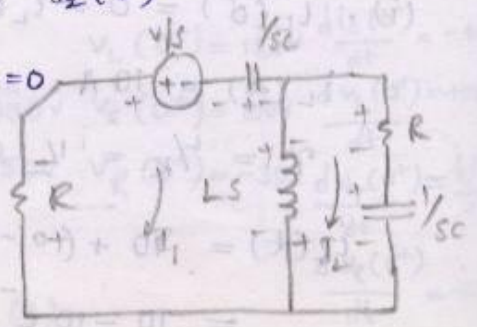 V/S
1/SC
=0
+ -
+
- + -
+
R
-
-
R
+ -
LS
-
+
I₁
I₂
1/SC
+
- + -